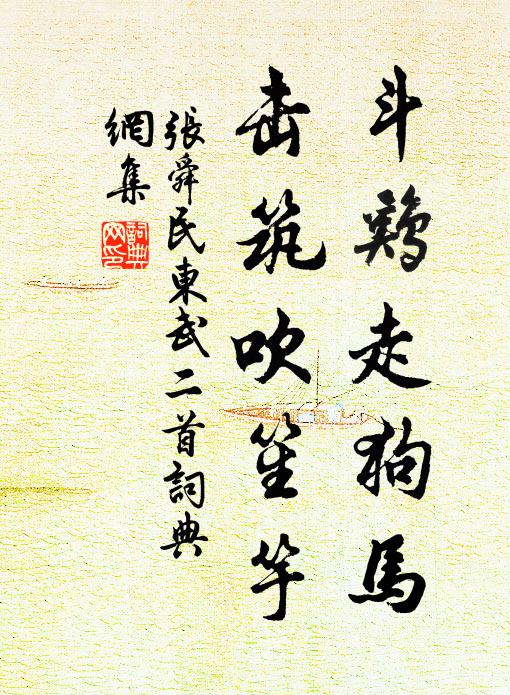 斗鸡走狗馬
击筑吹笙竽
張舜民東武二首詞典
網集
詞典
网印